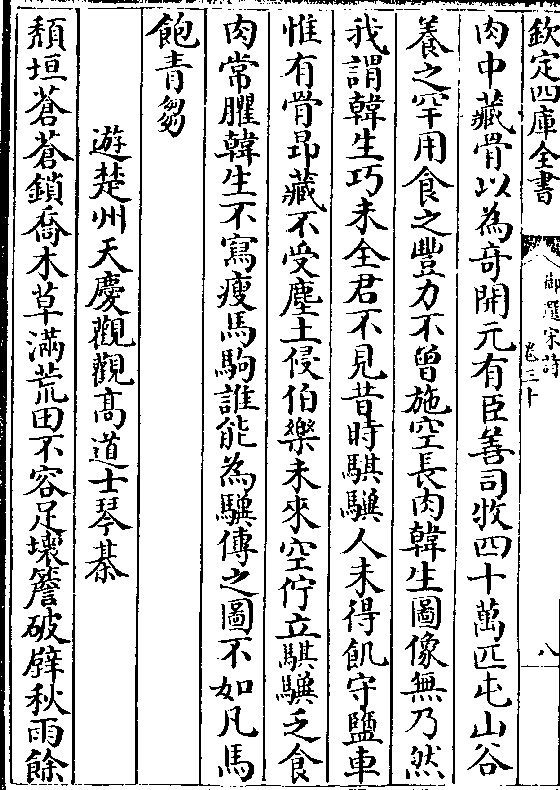 欽定四庫全書
御選宋詩
卷三十
八
肉中藏骨以為奇開元有臣善司牧四十萬匹屯山谷
養之罕用食之豐力不曾施空長肉韓生圖像無乃然
我謂韓生巧未全君不見昔時騏驥人未得飢守鹽車
惟有骨昂藏不受塵土侵伯樂未來空佇立騏驥乏食
肉常臞韓生不寫瘦馬駒誰能為驥傳之圖不如凡馬
飽青芻
遊楚州天慶觀觀髙道士琴棊
頹垣蒼蒼鎖喬木草滿荒田不容足壊簷破壁秋雨餘